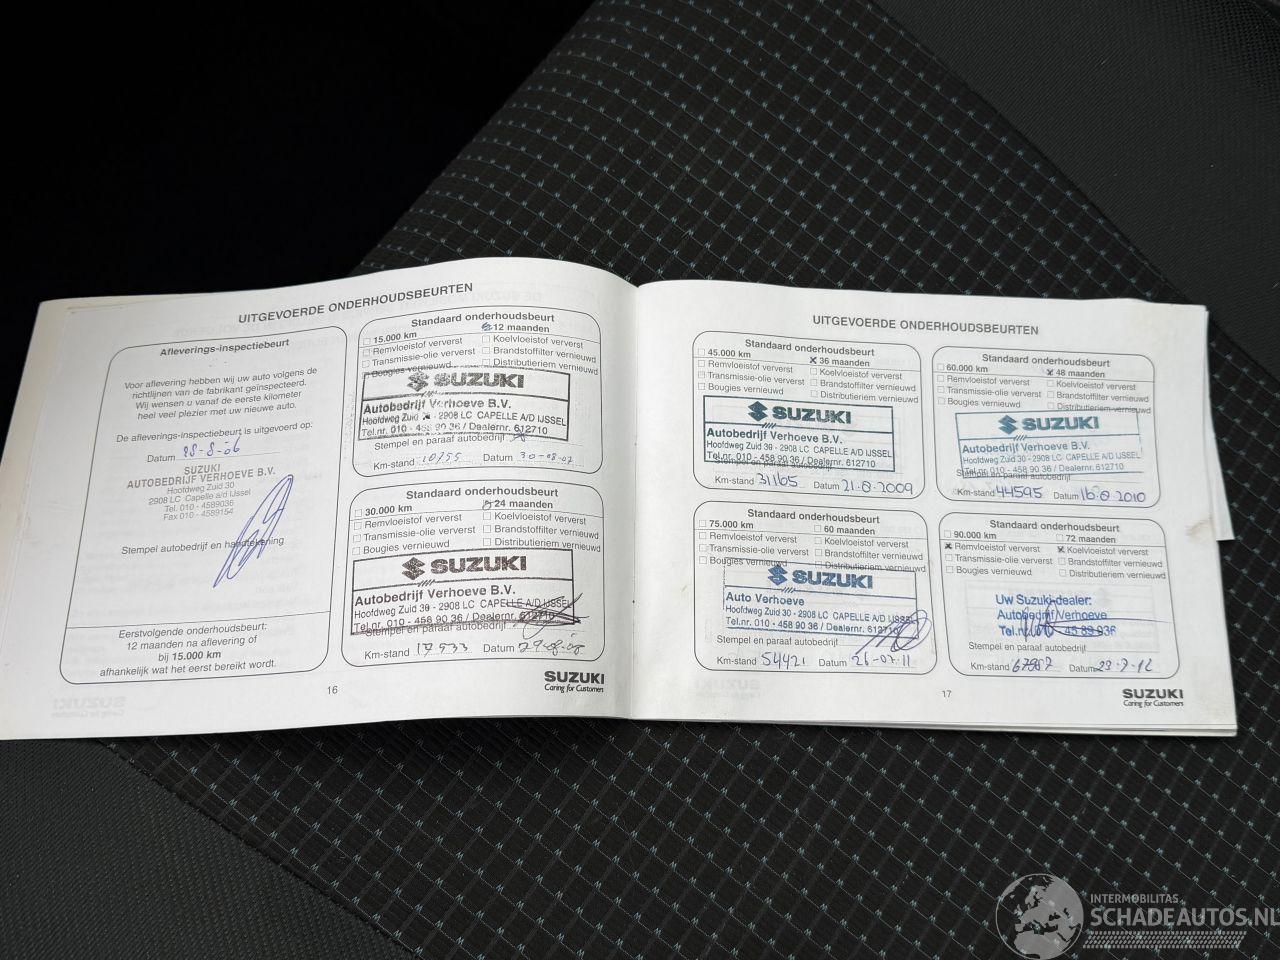 UITGEVOERDE ONDERHOUDSBEURTEN
Afleverings-inspectiebeurt
Voor aflevering hebben wij uw auto volgens de
richtlijnen van de fabrikant geïnspecteerd.
Wij wensen u vanaf de eerste kilometer
heel veel plezier met uw nieuwe auto.
De afleverings-inspectiebeurt is uitgevoerd op:
Datum 28-8-06
SUZUKI
AUTOBEDRIJF VERHOEVE B.V.
Hoofdweg Zuid 30
2908 LC Capelle a/d IJssel
Tel. 010 - 4589036
Fax 010 - 4589154
Stempel autobedrijf en handtekening
Eerstvolgende onderhoudsbeurt:
12 maanden na aflevering of
bij 15.000 km
afhankelijk wat het eerst bereikt wordt.
Standaard onderhoudsbeurt
15.000 km 12 maanden
Remvloeistof ververst Koelvloeistof ververst
Transmissie-olie ververst Brandstoffilter vernieuwd
Bougies vernieuwd Distributieriem vernieuwd
SUZUKI
Autobedrijf Verhoeve B.V.
Hoofdweg Zuid - 2908 LC CAPELLE A/D IJSSEL
Tel.nr. 010 - 458 90 36 / Dealernr. 612710
Stempel en paraaf autobedrijf
Km-stand 10155 Datum 30-08-07
Standaard onderhoudsbeurt
30.000 km 24 maanden
Remvloeistof ververst Koelvloeistof ververst
Transmissie-olie ververst Brandstoffilter vernieuwd
Bougies vernieuwd Distributieriem vernieuwd
SUZUKI
Autobedrijf Verhoeve B.V.
Hoofdweg Zuid 30 - 2908 LC CAPELLE A/D IJSSEL
Tel.nr. 010 - 458 90 36 / Dealernr. 612710
Stempel en paraaf autobedrijf
Km-stand 17933 Datum 29-08-08
16
SUZUKI
Caring for Customers
UITGEVOERDE ONDERHOUDSBEURTEN
Standaard onderhoudsbeurt
45.000 km 36 maanden
Remvloeistof ververst Koelvloeistof ververst
Transmissie-olie ververst Brandstoffilter vernieuwd
Bougies vernieuwd Distributieriem vernieuwd
SUZUKI
Autobedrijf Verhoeve B.V.
Hoofdweg Zuid 30 - 2908 LC CAPELLE A/D IJSSEL
Tel.nr. 010 - 458 90 36 / Dealernr. 612710
Stempel en paraaf autobedrijf
Km-stand 31165 Datum 21-8-2009
Standaard onderhoudsbeurt
60.000 km 48 maanden
Remvloeistof ververst Koelvloeistof ververst
Transmissie-olie ververst Brandstoffilter vernieuwd
Bougies vernieuwd Distributieriem vernieuwd
SUZUKI
Autobedrijf Verhoeve B.V.
Hoofdweg Zuid 30 - 2908 LC CAPELLE A/D IJSSEL
Tel.nr. 010 - 458 90 36 / Dealernr. 612710
Stempel en paraaf autobedrijf
Km-stand 44595 Datum 16-8-2010
Standaard onderhoudsbeurt
75.000 km 60 maanden
Remvloeistof ververst Koelvloeistof ververst
Transmissie-olie ververst Brandstoffilter vernieuwd
Bougies vernieuwd Distributieriem vernieuwd
SUZUKI
Auto Verhoeve
Hoofdweg Zuid 30 - 2908 LC CAPELLE A/D IJSSEL
Tel.nr. 010 - 458 90 36 / Dealernr. 612710
Stempel en paraaf autobedrijf
Km-stand 54421 Datum 26-07-11
Standaard onderhoudsbeurt
90.000 km 72 maanden
Remvloeistof ververst Koelvloeistof ververst
Transmissie-olie ververst Brandstoffilter vernieuwd
Bougies vernieuwd Distributieriem vernieuwd
Uw Suzuki-dealer:
Autobedrijf Verhoeve
Tel.nr. 010
Stempel en paraaf autobedrijf
Km-stand Datum 23-7-12
17
SUZUKI
Caring for Customers
INTERMOBILITAS
SCHADEAUTOS.NL